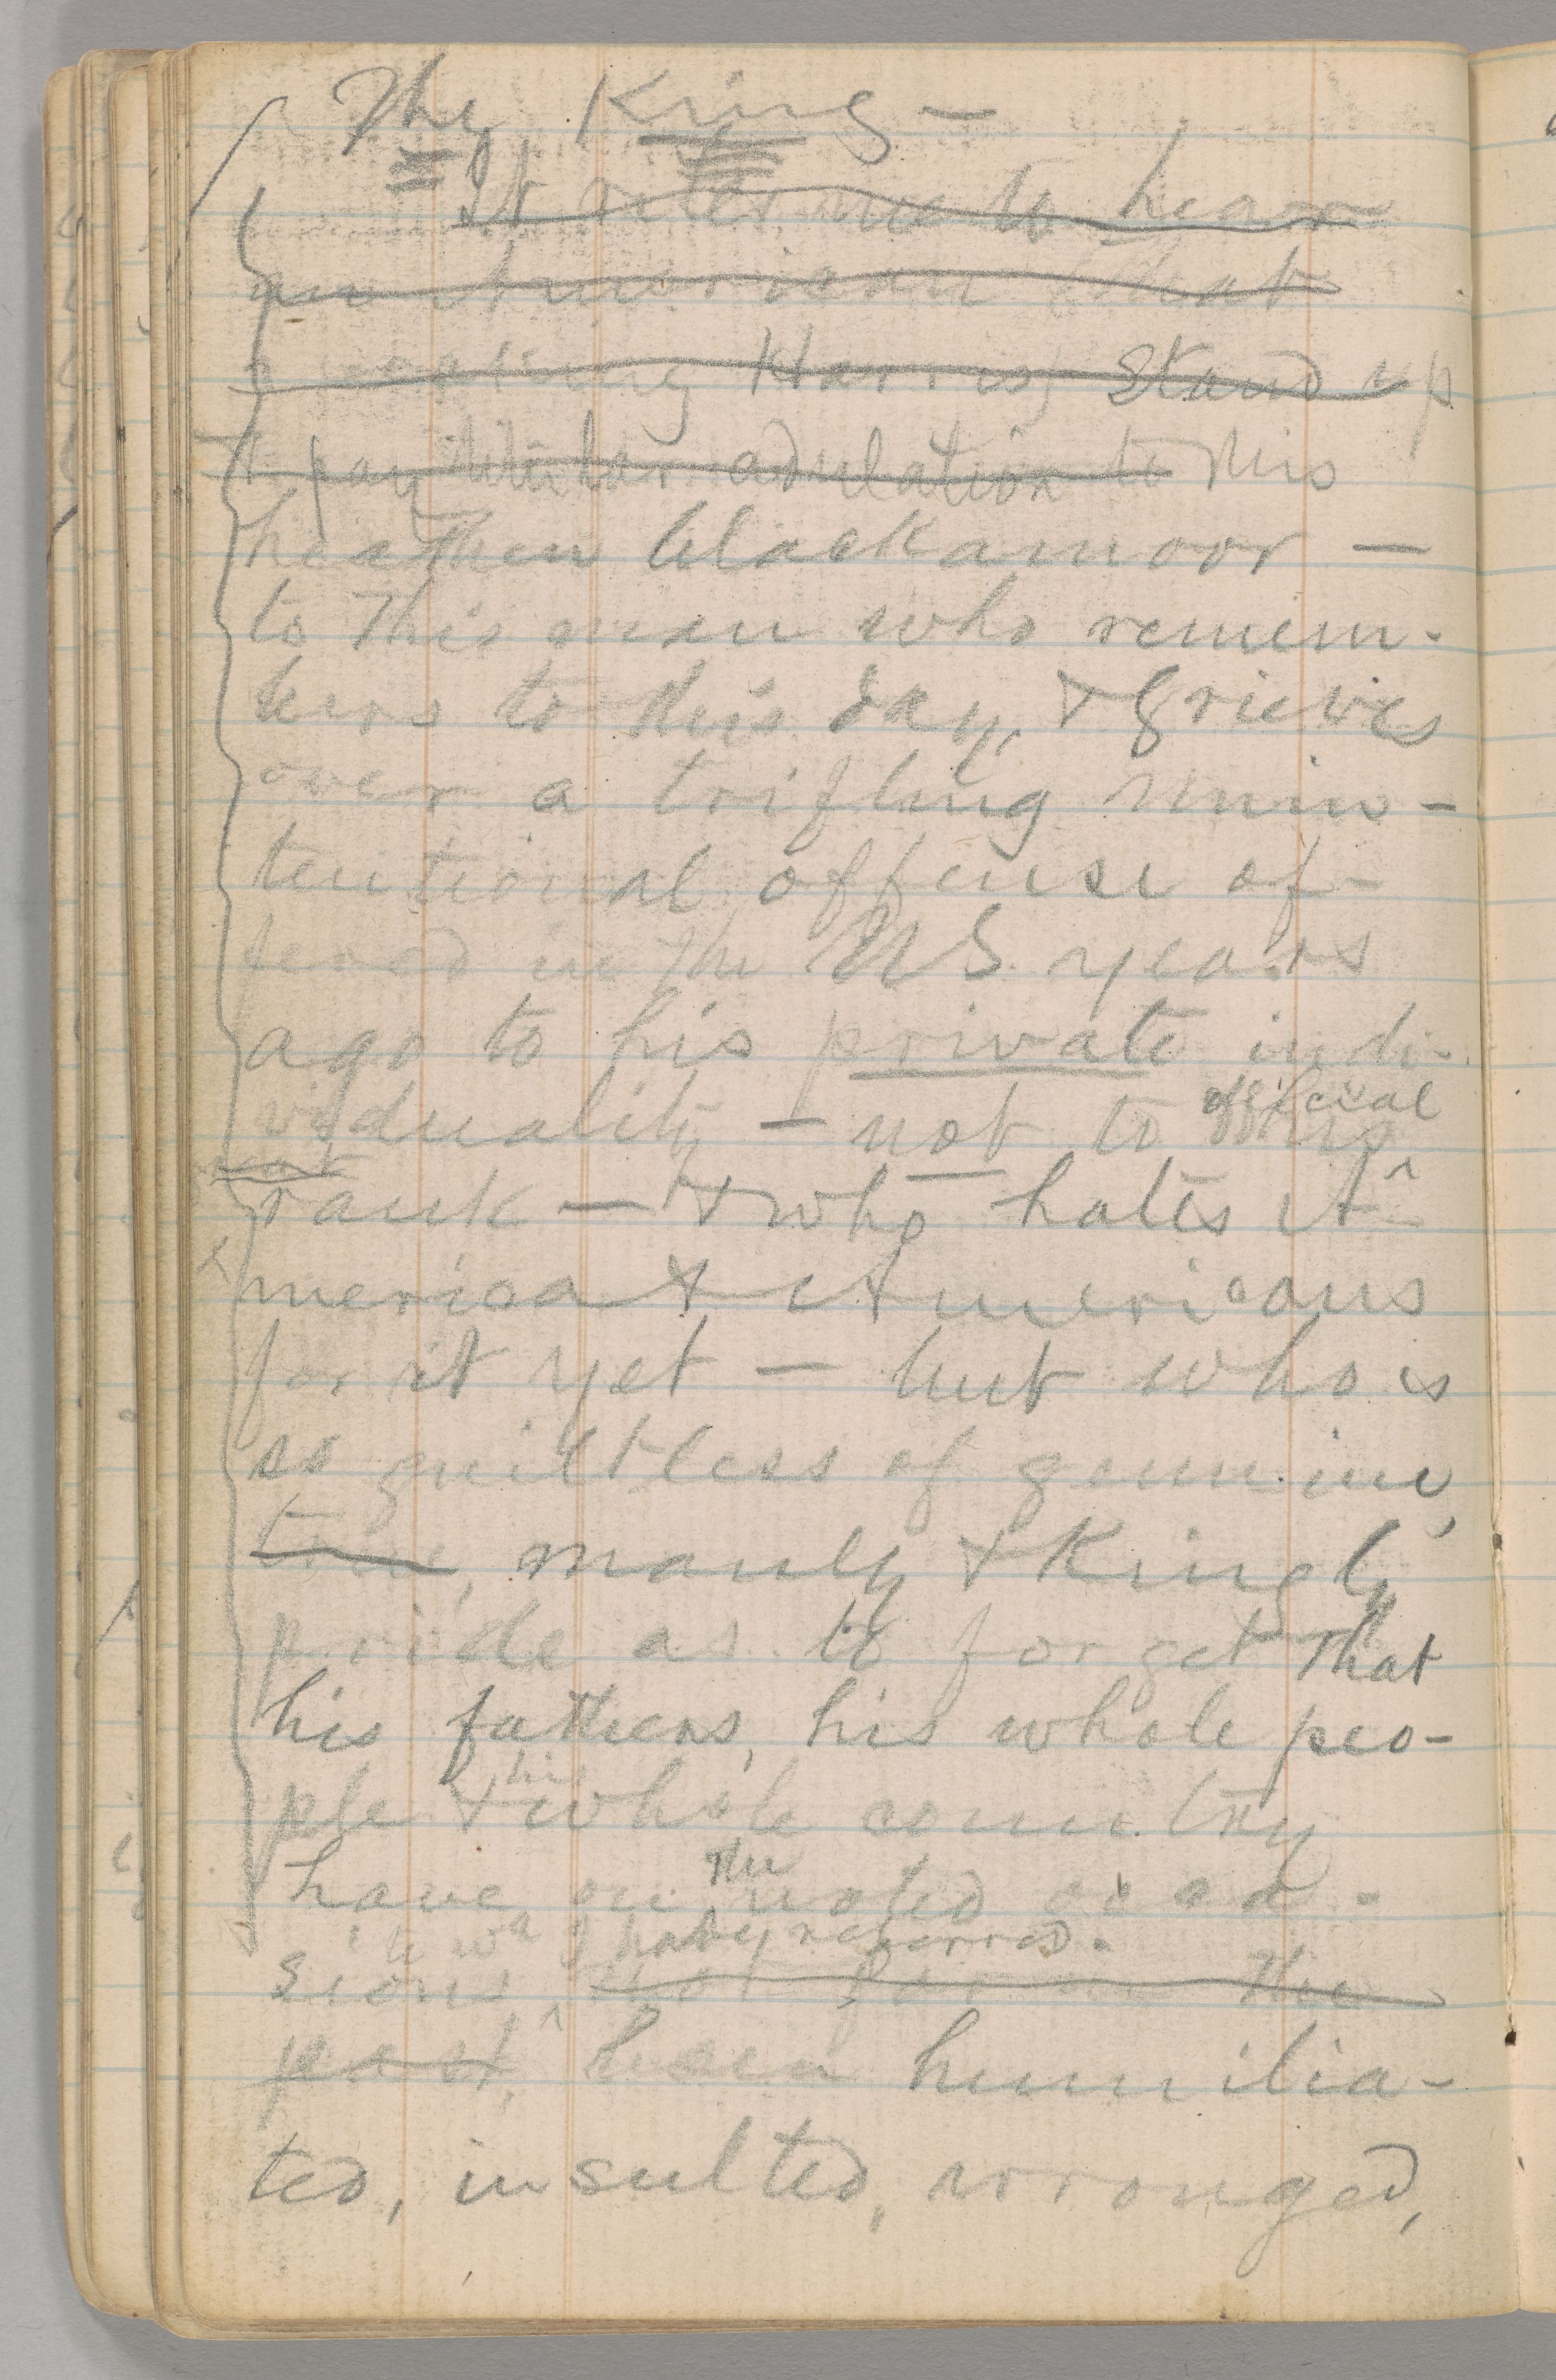 The King —
It riles me to hear
an American (that
Harris) stand up
& pay titular adulation to this
heathen blackamoor —
to this man who remem-
bers to this day, & grieves
over a trifling unin-
tentional offense of-
fered in the US. years
ago to his private indi-
viduality — not to his official
rank — & who hates A-
merica & Americans
for it yet — but who is
so guiltless of genuine,
true, manly & kingly
pride as to forget that
his fathers, his whole peo-
ple & his whole country
have on the noted occa-
sions to wh I have referred.
not far in the
past, been humilia-
ted, insulted, wronged,